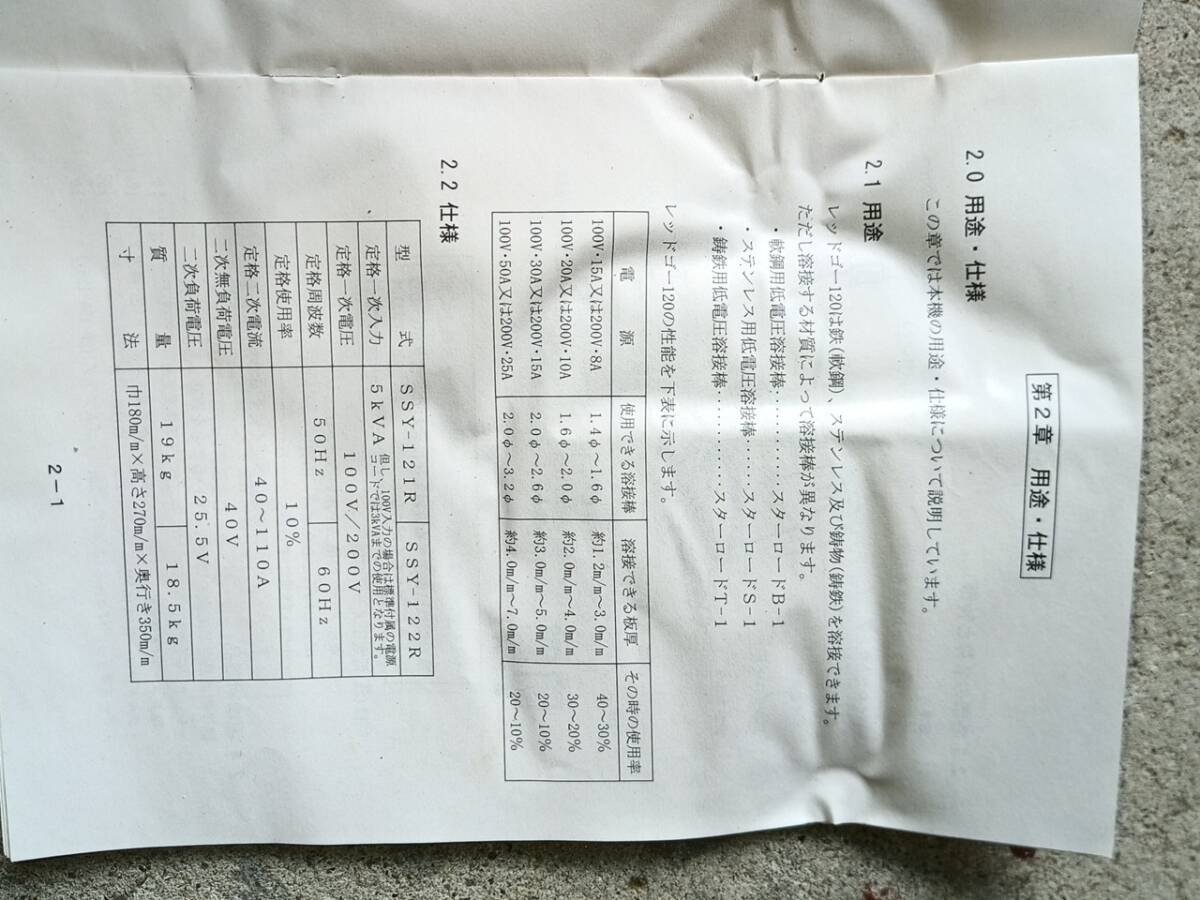 第2章 用途・仕様
2.0 用途・仕様
この章では本機の用途・仕様について説明しています。
2.1 用途
レッドゴー120は鉄(軟鋼)、ステンレス及び鋳物(鋳鉄)を溶接できます。
ただし溶接する材質によって溶接棒が異なります。
・軟鋼用低電圧溶接棒‥‥‥‥‥スターロードB-1
・ステンレス用低電圧溶接棒‥‥‥スターロードS-1
・鋳鉄用低電圧溶接棒‥‥‥‥‥スターロードT-1
レッドゴー120の性能を下表に示します。
電源 使用できる溶接棒 溶接できる板厚 その時の使用率
100V・15A又は200V・8A 1.4φ～1.6φ 約1.2m/m～3.0m/m 40～30%
100V・20A又は200V・10A 1.6φ～2.0φ 約2.0m/m～4.0m/m 30～20%
100V・30A又は200V・15A 2.0φ～2.6φ 約3.0m/m～5.0m/m 20～10%
100V・50A又は200V・25A 2.0φ～3.2φ 約4.0m/m～7.0m/m 20～10%
2.2 仕様
型式 SSY-121R SSY-122R
定格一次入力 5kVA 但し、100V入力の場合は標準付属の電源
コードでは3kVAまでの使用となります。
定格一次電圧 100V/200V
定格周波数 50Hz 60Hz
定格使用率 10%
定格二次電流 40～110A
二次無負荷電圧 40V
二次負荷電圧 25.5V
質量 19kg 18.5kg
寸法 巾180m/m×高さ270m/m×奥行き350m/m
2-1